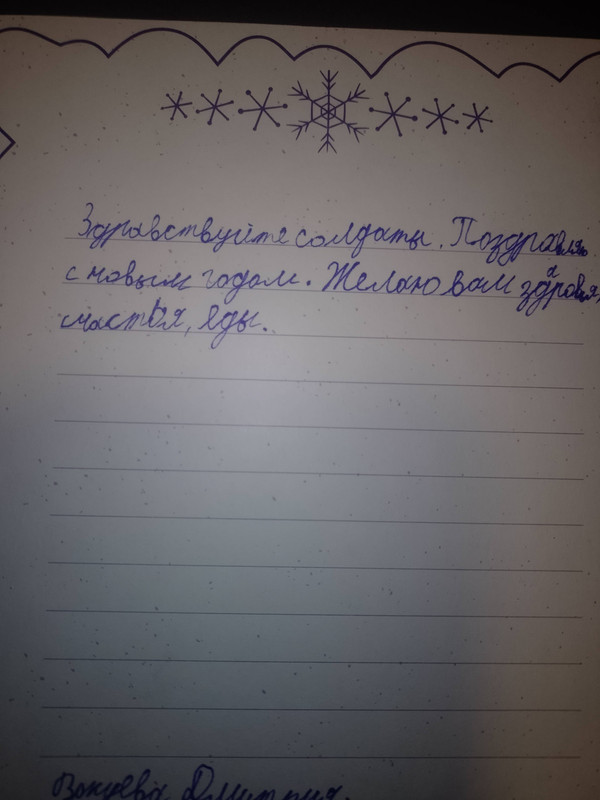 Здравствуйте солдаты. Поздравляю
с новым годом. Желаю вам здровия,
счастья, еды.
Дмитрия.